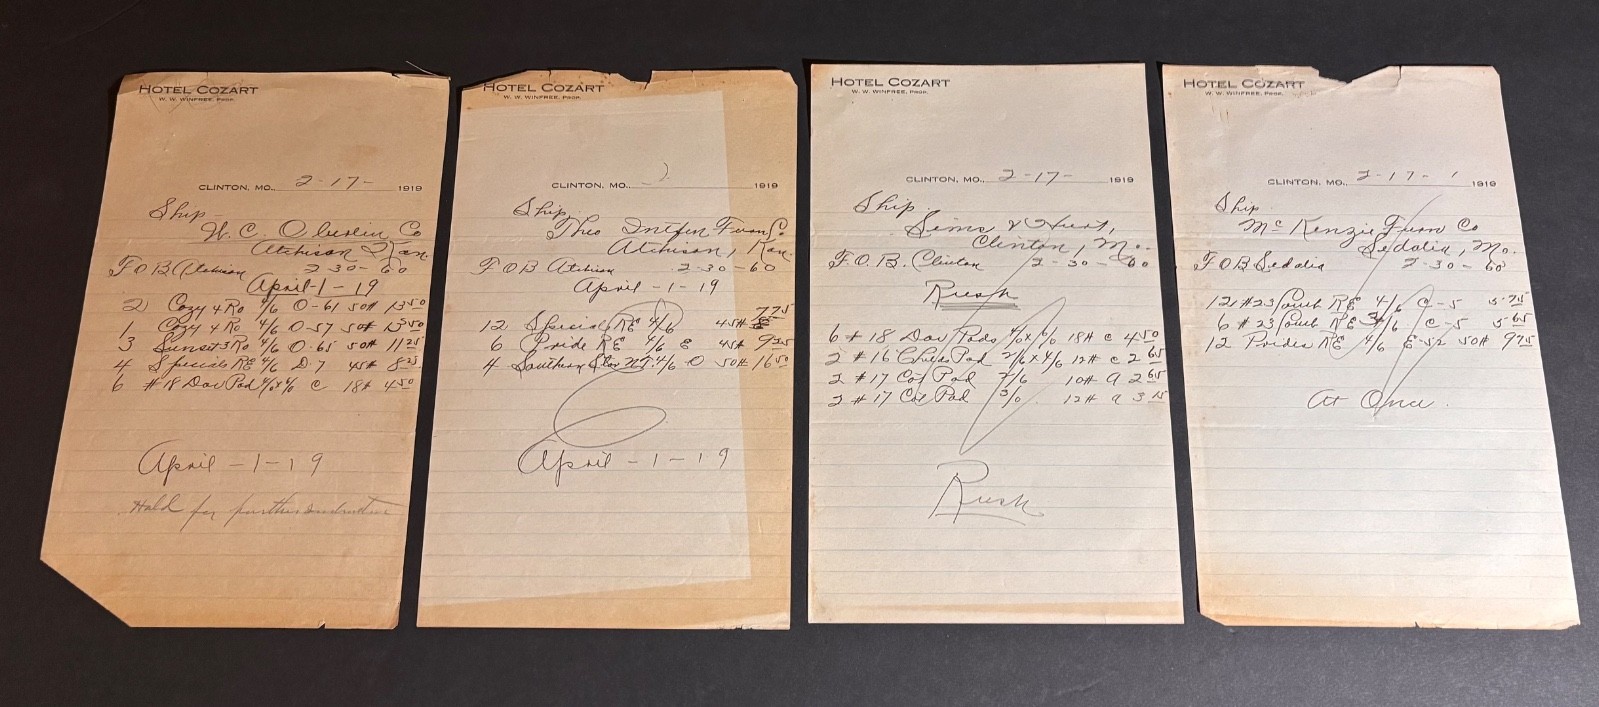 HOTEL COZART
W. W. WINFREE, PROP.
CLINTON, MO., 2-17- 1919
Ship
H. C. Oberlin Co
Atchison Kan.
F O B Atchison 2-30-60
April-1-19
2 Cozy 4 Ro 4/6 O-61 50# 13 50
1 Cozy 4 Ro 4/6 O-57 50# 13 50
3 Sunset 3 Ro 4/6 O-65 50# 11 25
4 Specials RE 4/6 D 7 45# 8 25
6 #18 Dav Pad 4/0x6/0 C 18# 4 50
April-1-19
Hold for further
HOTEL COZART
W. W. WINFREE, PROP.
CLINTON, MO., 1919
Ship
Theo Furn Co
Atchison, Kan.
F O B Atchison 2-30-60
April-1-19
12 Specials RE 4/6 45# 7 75
6 Pride RE 4/6 E 45# 9 25
4 Southern Star 4/6 O 50# 16 50
April-1-19
HOTEL COZART
W. W. WINFREE, PROP.
CLINTON, MO., 2-17- 1919
Ship
Sims & Hurt,
Clinton, Mo.
F.O.B. Clinton 2-30-60
Rush
6 #18 Dav Pads 4/0x6/0 18# c 4 50
2 #16 Childs Pad 2/6x4/6 12# c 2 65
2 #17 Cot Pad 2/6 10# a 2 65
2 #17 Cot Pad 3/0 12# a 3 15
Rush
HOTEL COZART
W. W. WINFREE, PROP.
CLINTON, MO., 2-17- 1919
Ship
McKenzie Furn Co
Sedalia, Mo.
F O B Sedalia 2-30-60
12 #23 Comb RE 4/6 C-5 5 75
6 #23 Comb RE C-5 5 65
12 Prides RE 4/6 E-52 50# 9 75
At Once.